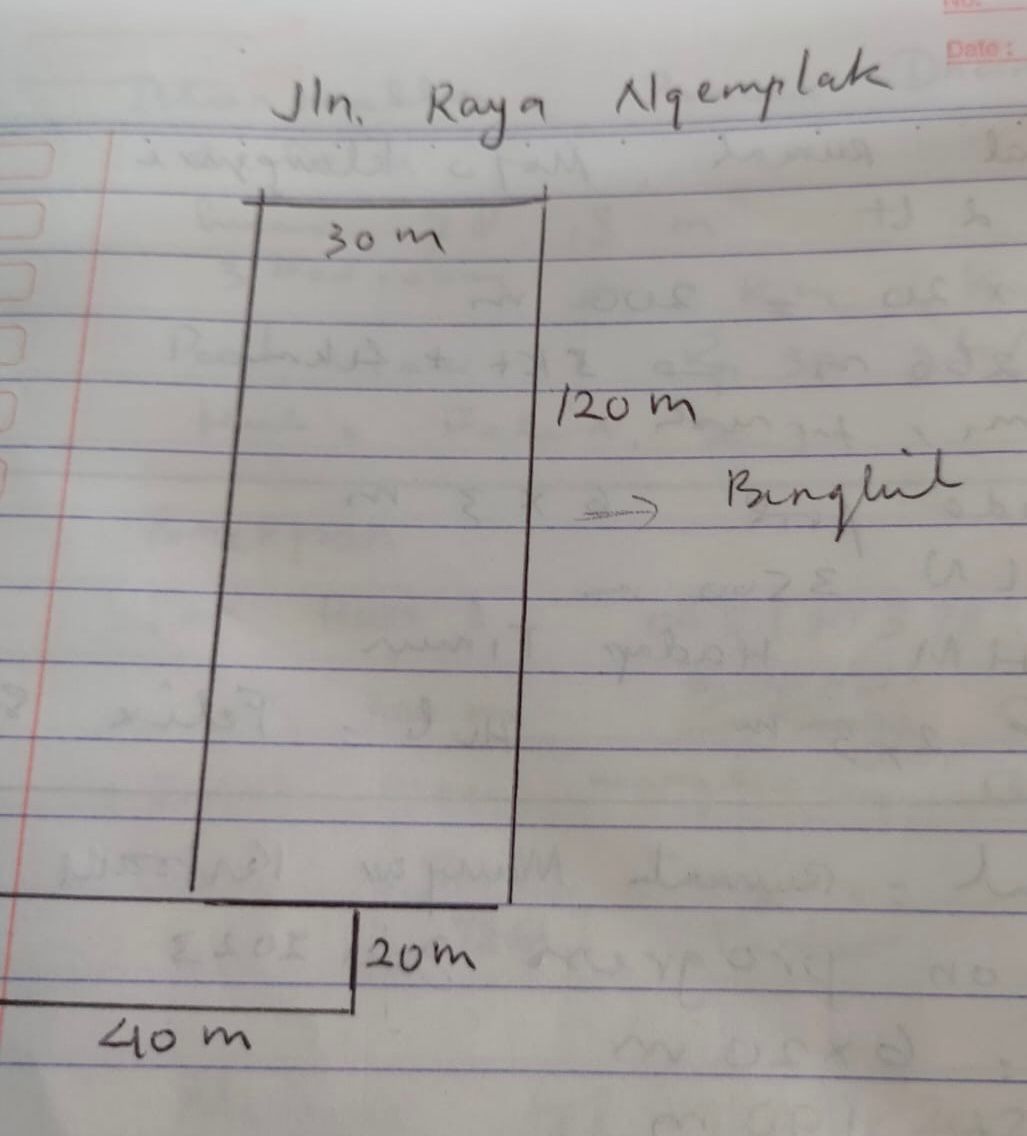 No.
Date :
Jln. Raya Ngemplak
30 m
120 m
20m
40 m